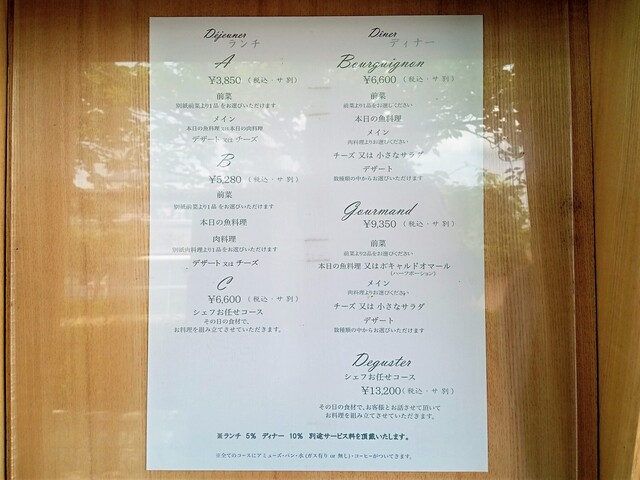 Déjeuner
ランチ
A
¥3,850 (税込・サ別)
前菜
別紙前菜より1品 をお選びいただけます
メイン
本日の魚料理 又は 本日の肉料理
デザート 又は チーズ
B
¥5,280 (税込・サ別)
前菜
別紙前菜より1品 をお選びいただけます
本日の魚料理
肉料理
別紙肉料理より1品をお選びいただけます
デザート 又は チーズ
C
¥6,600 (税込・サ別)
シェフお任せコース
その日の食材で、
お料理を組み立てさせていただきます。
Dîner
ディナー
Bourguignon
¥6,600 (税込・サ別)
前菜
前菜より1品をお選びください
本日の魚料理
メイン
肉料理よりお選びください
チーズ 又は 小さなサラダ
デザート
数種類の中からお選びいただけます
Gourmand
¥9,350 (税込・サ別)
前菜
前菜より2品をお選びください
本日の魚料理 又はポキャルドオマール
(ハーフポーション)
メイン
肉料理よりお選びください
チーズ 又は 小さなサラダ
デザート
数種類の中からお選びいただけます
Deguster
シェフお任せコース
¥13,200 (税込・サ別)
その日の食材で、お客様とお話させて頂いて
お料理を組み立てさせていただきます。
※ランチ 5% ディナー 10% 別途サービス料を頂戴いたします。
※全てのコースにアミューズ・パン・水(ガス有り or 無し)・コーヒーがついてきます。